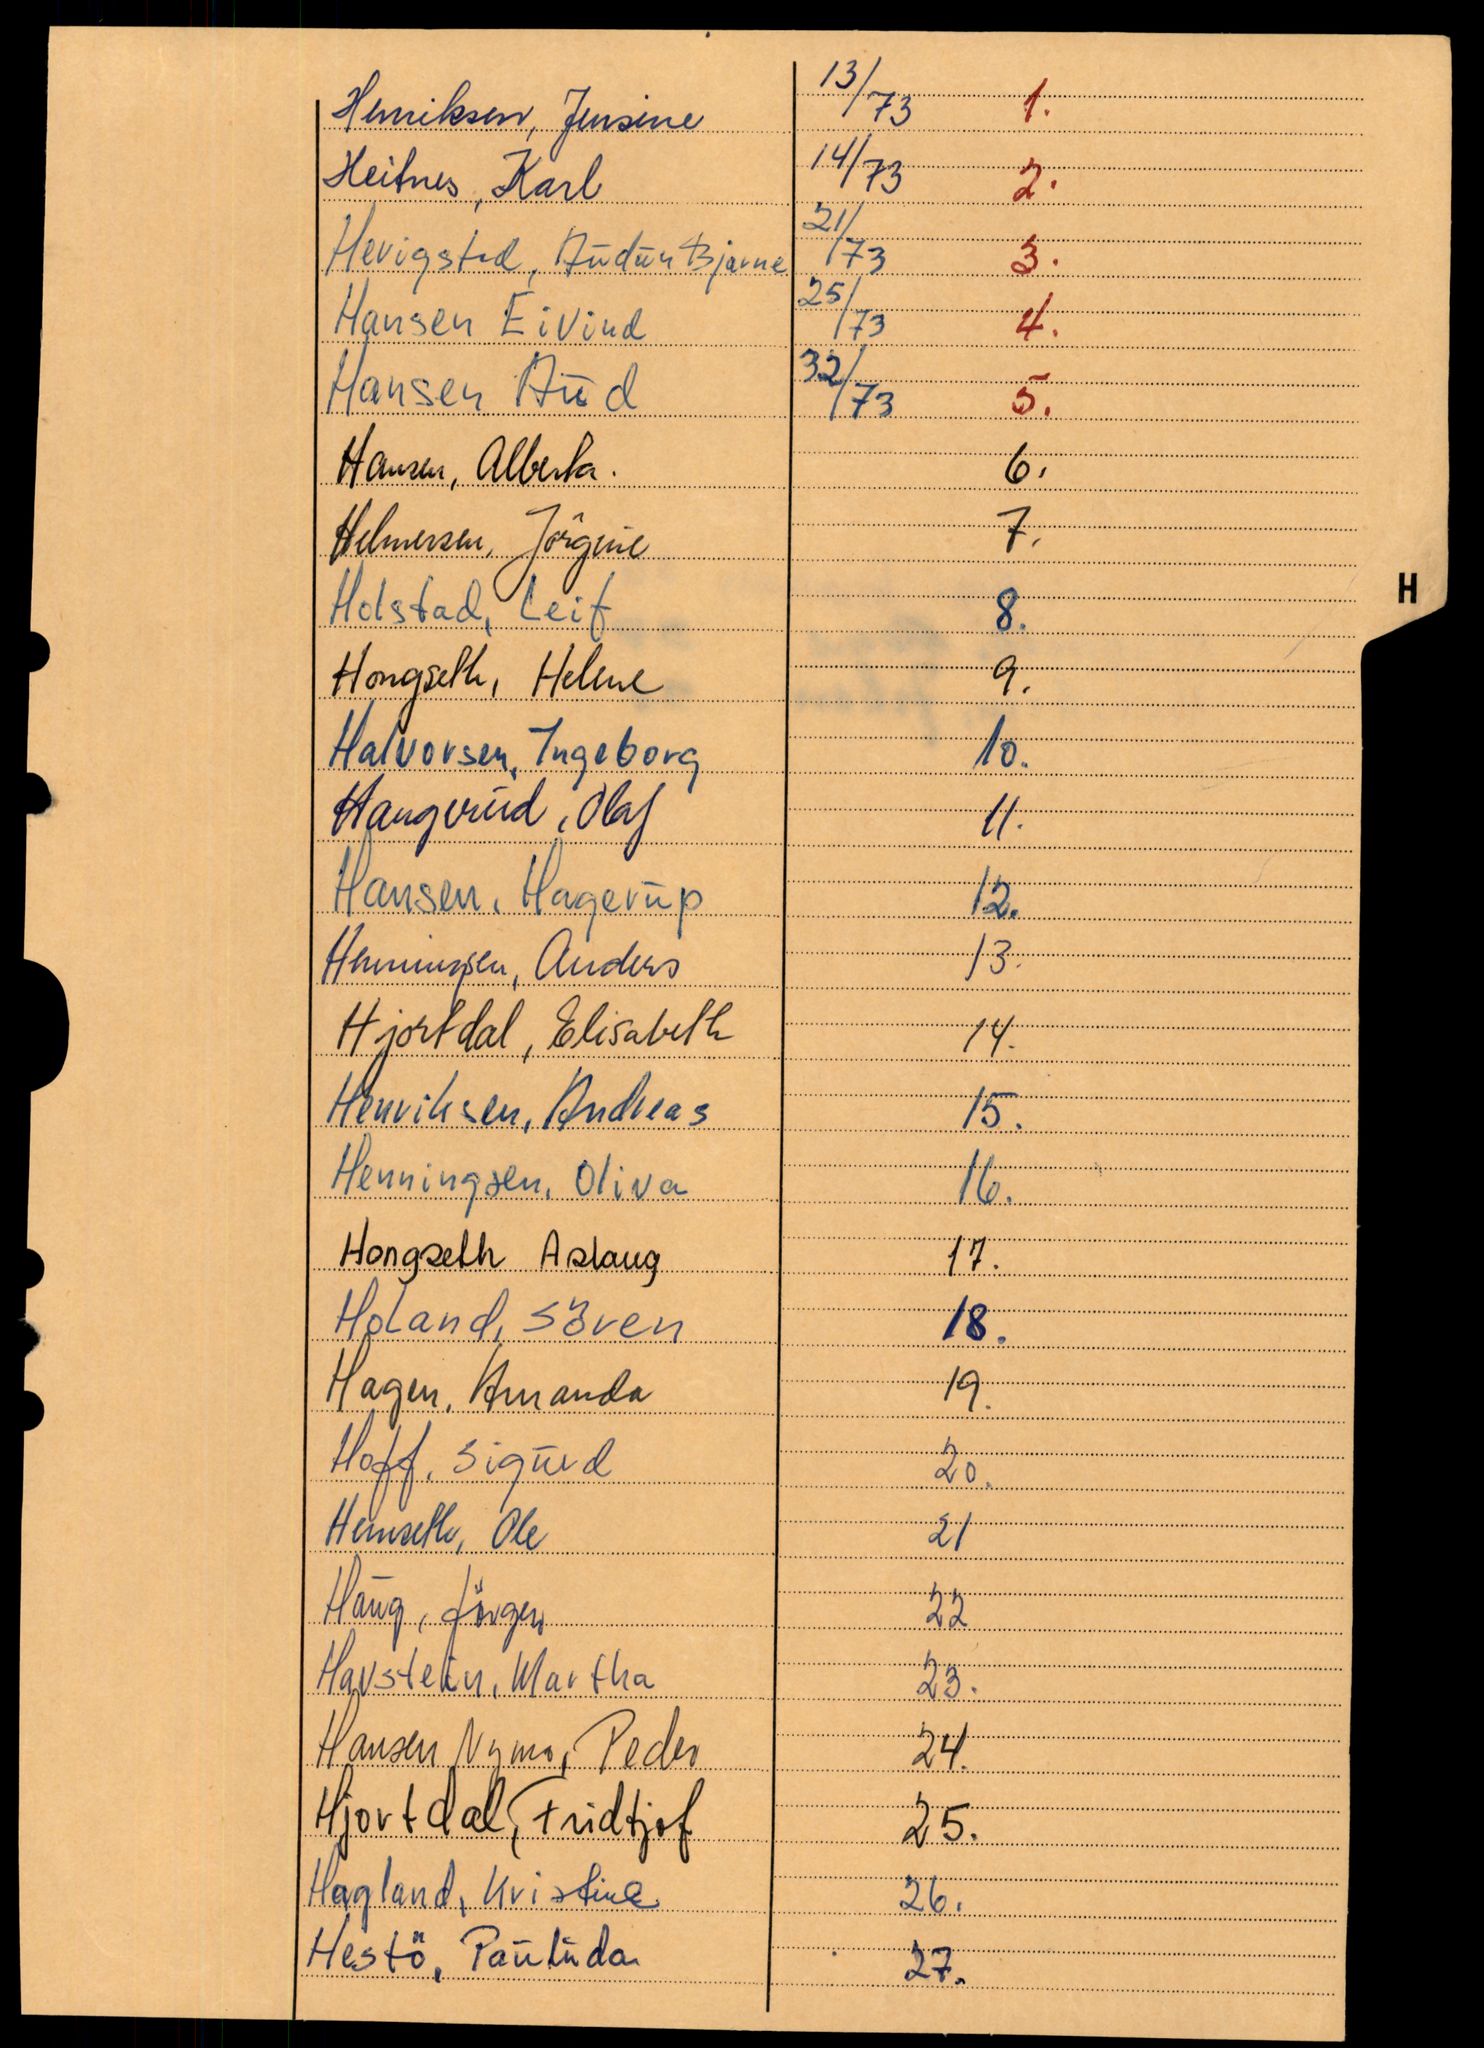 Henriksen, Jensine 13/73 1.
Heitnes, Karl 14/73 2.
Hevigstad, Audun Bjarne 21/73 3.
Hansen Eivind 25/73 4.
Hansen Aud 32/73 5.
Hansen, Alberta. 6.
Helmersen, Jörgine 7.
Holstad, Leif 8.
H
Hongseth, Helene 9.
Halvorsen, Ingeborg 10.
Haugerud, Olaf 11.
Hansen, Hagerup 12.
Henningsen, Anders 13.
Hjortdal, Elisabeth 14.
Henriksen, Andreas 15.
Henningsen, Oliva 16.
Hongseth Aslaug 17.
Holand, Sören 18.
Hagen, Amanda 19.
Hoff, Sigurd 20.
Hemseth, Ole 21
Haug, Jörgen 22
Havstein, Martha 23.
Hansen Nymo, Peder 24.
Hjortdal, Fridtjof 25.
Hagland, Kristine 26.
Hestö, 27.